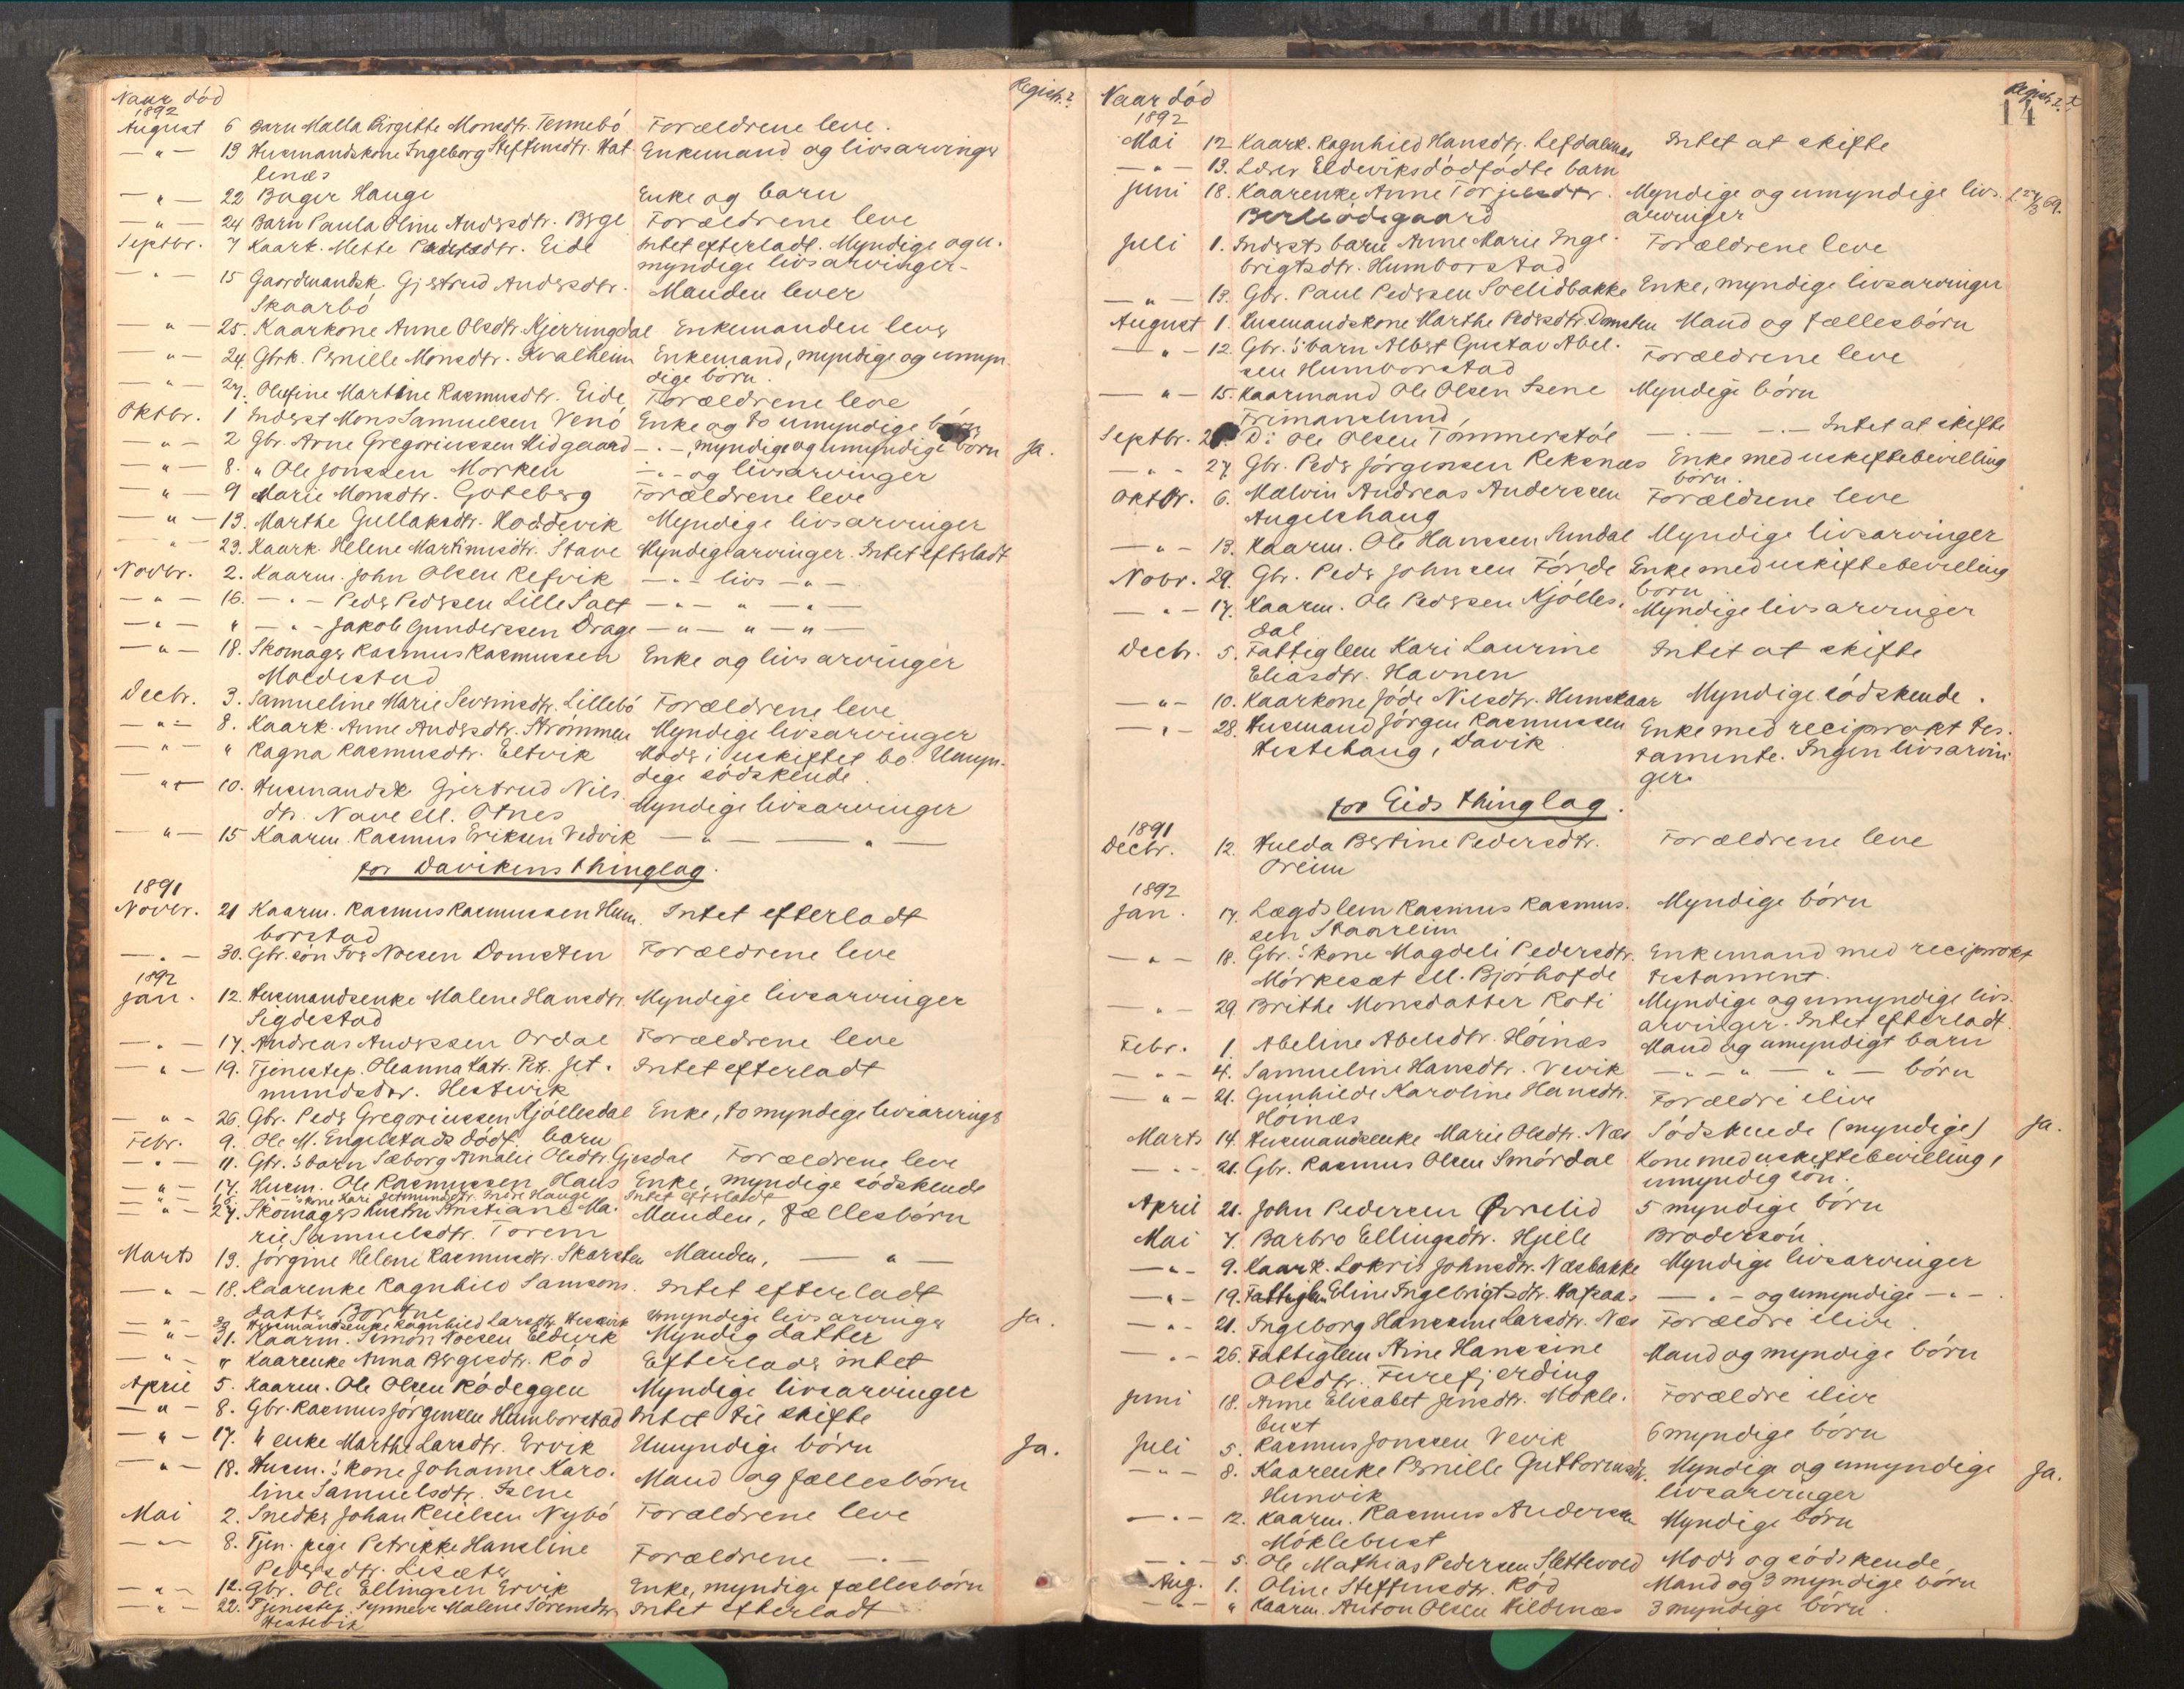 Naar död
Regist.?
1892
August 6 Barn Malla Birgitte Monsdtr. Tennebö Forældrene leve.
—"— 13 Husmandskone Ingeborg Steffensdtr. Hat- Enkemand og livsarvinger
lenæs
—"— 22 Bager Hauge Enke og barn
—"— 24 Barn Paula Oline Andersdtr. Berge Forældrene leve
Septbr. 7 Kaark. Mette Paulsdtr. Eide Intet efterladt. Myndige og u-
myndige livsarvinger-
—"— 15 Gaardmandsk. Gjertrud Andersdtr. Manden lever
Skaarbö
—"— 25. Kaarkone Anne Olsdtr. Kjerringdal Enkemanden lever
—"— 24. Gbrk. Pernille Monsdtr. Kvalheim Enkemand, myndige og umyn-
dige börn.
—"— 27. Olufine Martine Rasmusdtr. Eide Forældrene leve
Oktbr. 1 Inderst Mons Samuelsen Venö Enke og to umyndige börn
—"— 2 Gbr. Arne Gregoriussen Midgaard —"— , myndige og umyndige börn Ja.
—"— 8. " Ole Jonssen Morken —"— og livsarvinger
—"— 9 Marie Monsdtr. Goteberg Forældrene leve
—"— 13. Marthe Gullaksdtr. Hoddevik Myndige livsarvinger
—"— 23. Kaark. Helene Martinusdtr. Stave Myndige arvinger. Intet efterladt
Novbr. 2. Kaarm. John Olsen Refvik —"— livs —"—
—"— 16. —"— Peder Pedersen Lille Salt —"— " —"—
—"— " —"— Jakob Gunderssen Drage —"— " —"—
—"— 18. Skomager Rasmus Rasmussen Enke og livsarvinger
Moldestad
Decbr. 3. Samueline Marie Severinsdtr. Lillebö Forældrene leve
—"— 8. Kaark. Anne Andersdtr. Strømmen Myndige livsarvinger
—"— " Ragna Rasmusdtr. Eltvik Moder i uskiftet bo. Umyn-
dige södskende.
—"— 10. Husmandsk Gjertrud Nils- Myndige livsarvinger
dtr. Nave ell. Otnes
—"— 15 Kaarm. Rasmus Eriksen Vedvik —"— —"—
for Davikens thinglag.
1891
Novbr. 21 Kaarm. Rasmus Rasmussen Hum- Intet efterladt
borstad
—"— 30. Gbr. sön Iver Noesen Domsten Forældrene leve
1892
Jan. 12. Husmandsenke Malene Hansdtr. Myndige livsarvinger
Sigdestad
—"— 17. Andreas Anderssen Ordal Forældrene leve
—"— 19. Tjenestep. Oleanna Katr. Petr. Jet- Intet efterladt
mundsdtr. Hestevik
—"— 26. Gbr. Peder Gregoriussen Kjöllesdal Enke, to myndige livsarvinger
Febr. 9. Ole M. Engelstads dödf. barn
—"— 11. Gbr.s barn Sæborg Amalie Olsdtr. Gjesdal Forældrene leve
—"— 17. Husm. Ole Rasmussen Haus Enke, myndige södskende
—"— 18. —"— skone Kari Jetmundsdtr. Indre Hauge Intet efterladt
—"— 27. Skomagers hustru Kristiane Ma- Manden, Fællesbörn
rie Samuelsdtr. Torem
Marts 13. Jörgine Helene Rasmusdtr. Skarsten Manden, —"—
—"— 18. Kaarenke Ragnhild Samsons- Intet efterladt
datter Bortne
—"— Husmandsenke Ragnhild Larsdtr. Hessevik Umyndige livsarvinger Ja.
—"— 31. Kaarm. Simon Noesen Eldevik Myndig datter
—"— " Kaarenke Anna Bergesdtr. Röd Efterlader intet
April 5. Kaarm. Ole Olsen Rödeggen Myndige livsarvinger
—"— 8. Gbr. Rasmus Jörgensen Humborstad Intet til skifte
—"— 17. " enke Marthe Larsdtr. Ervik Umyndige börn Ja.
—"— 18. Husm.s kone Johanne Karo- Mand og fællesbörn
line Samuelsdtr. Isene
Mai 2. Snedker Johan Reielsen Nybö Forældrene leve
—"— 8. Tjen. pige Petrikke Hansline Forældrene —"—
Pedersdtr. Lisæter
—"— 12. Gbr. Ole Ellingsen Ervik Enke, myndige fællesbörn
—"— 22. Tjenestep. Synneve Malene Sörensdtr. Intet efterladt
Hestevik
Naar död
Regist.?
14
1892
Mai 12 Kaark. Ragnhild Hansdtr. Lefdalsnes Intet at skifte
—"— 13. Lærer Eldeviks dödfödte barn
Juni 18. Kaarenke Anne Torjusdtr. Myndige og umyndige livs-
Berleödegaard arvinger
Juli 1. Indersts barn Anne Marie Inge- Forældrene leve
brigtsdtr. Humborstad
—"— 13. Gbr. Paul Pedersen Sælidbakke Enke, myndige livsarvinger
August 1. Husmandskone Marthe Pedersdtr. Domsten Mand og fællesbörn
—"— 12. Gbr.s barn Albert Gustav Abel- Forældrene leve
sen Humborstad
—"— 15. Kaarmand Ole Olsen Isene Myndige börn
Frimanslund,
Septbr. D: Ole Olsen Tömmerstöl —"— —"— Intet at skifte
—"— 27 Gbr. Peder Jörgensen Reksnæs Enke med uskiftebevilling
börn.
Oktbr. 6. Malvin Andreas Anderssen Forældrene leve
Angelshaug
—"— 13. Kaarm. Ole Hanssen Sundal Myndige livsarvinger
Nobr. 29. Gbr. Peder Johnsen Förde Enke med uskiftebevilling
börn
—"— 17. Kaarm. Ole Pedersen Kjölles- Myndige livsarvinger
dal
Decbr. 5. Fattiglem Kari Laurine Intet at skifte
Eliasdtr. Havnen
—"— 10. Kaarkone Jöde Nilsdtr. Hunskaar Myndige södskende.
—"— 28. Husmand Jörgen Rasmussen Enke med reciprokt tes-
Hestehaug, Davik tamente. Ingen livsarvin-
ger.
for Eids thinglag.
1891
Decbr. 12. Hulda Bertine Pedersdtr. Forældrene leve
Oreim
1892
Jan. 17. Lægdslem Rasmus Rasmus- Myndige börn
sen Skaareim
—"— 18. Gbr.s kone Magdeli Pedersdtr. Enkemand med reciprokt
Mörkesæt ell. Bjørhofde testament.
—"— 29. Brithe Monsdatter Roti Myndige og umyndige livs-
arvinger. Intet efterladt.
Febr. 1. Abeline Abelsdtr. Höinæs Mand og umyndigt barn
—"— 4. Samueline Hansdtr. Vevik —"— " —"— börn
—"— 21. Gunhilde Karoline Hansdtr. Forældre ilive
Höinæs
Marts 14. Husmandsenke Marie Olsdtr. Næs Södskende (myndige) Ja.
—"— 21. Gbr. Rasmus Olsen Smördal Kone med uskiftebevilling,
umyndig sön.
April 21. John Pedersen Øvrelid 5 myndige börn
Mai 7. Barbro Ellingsdtr. Hjelle Brodersön
—"— 9. Kaark. Lokris Johnsdtr. Næsbakke Myndige livsarvinger
—"— 19. Fattiglem Eline Ingebrigtsdtr. Hafsaas —"— og umyndige —"—
—"— 21. Ingeborg Hanssine Larsdtr. Næs Forældre ilive.
—"— 26. Fattiglem Stine Hanssine Mand og myndige börn
Olsdtr. Furefjerding
Juni 18. Anne Elisabet Jensdtr. Mökle- Forældre ilive
bust
Juli 5. Rasmus Jonssen Vevik 6 myndige börn
—"— 8. Kaarenke Pernille Guttormsdtr. Myndige og umyndige Ja.
Hunvik livsarvinger
—"— 12. Kaarm. Rasmus Andersen Myndige börn
Möklebust
—"— 5. Ole Mathias Pedersen Slettevold Moder og södskende
Aug. 1. Oline Steffensdtr. Röd Mand og 3 myndige börn
—"— " Kaarm. Anton Olsen Hildenæs 3 myndige börn.